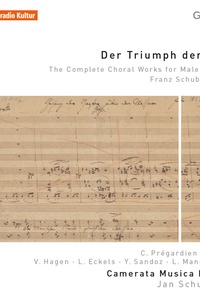 radio Kultur
G
Der Triumph der
The Complete Choral Works for Male
Franz Schub
C. Prégardien
V. Hagen - L. Eckels - Y. Sandoz - L. Man
Camerata Musica
Jan Schu